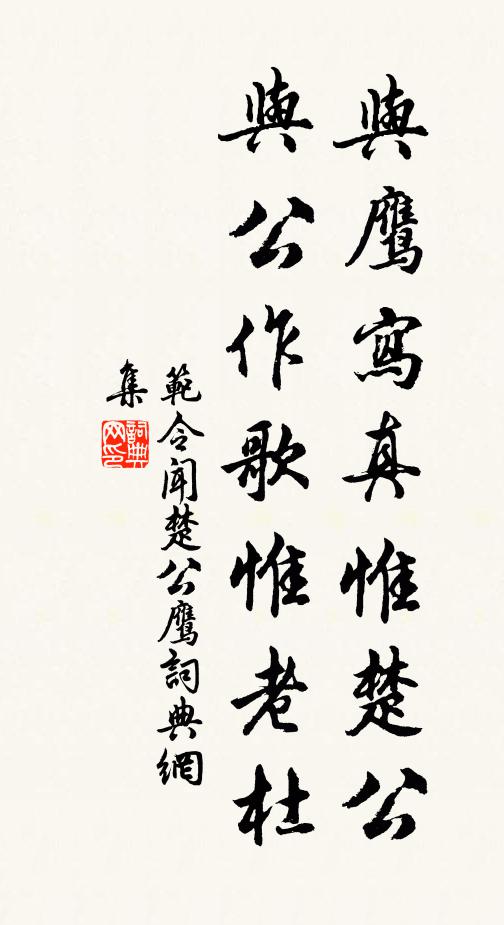 與鷹寫真惟楚公
與公作歌惟老杜
範令聞楚公鷹詞典網
集
詞典
网印